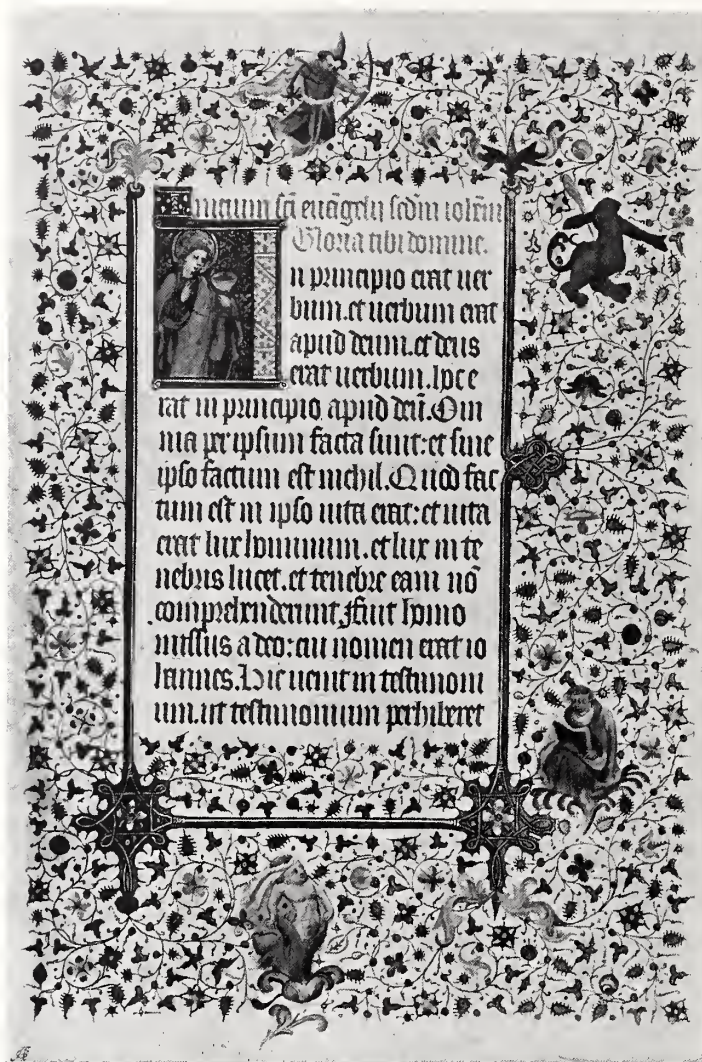 Inicium sci euāgelij scdm iohem
Gloria tibi domine.
In principio erat uer
bum. et uerbum erat
apud deum. et deus
erat uerbum. hoc e
rat in principio apud deū. Om
nia per ipsum facta sunt: et sine
ipso factum est nichil. Quod fac
tum est in ipso uita erat: et uita
erat lux hominum. et lux in te
nebris lucet. et tenebre eam nō
comprehenderunt. Fuit homo
missus a deo: cui nomen erat io
hannes. Hic uenit in testimoni
um. ut testimonium perhiberet